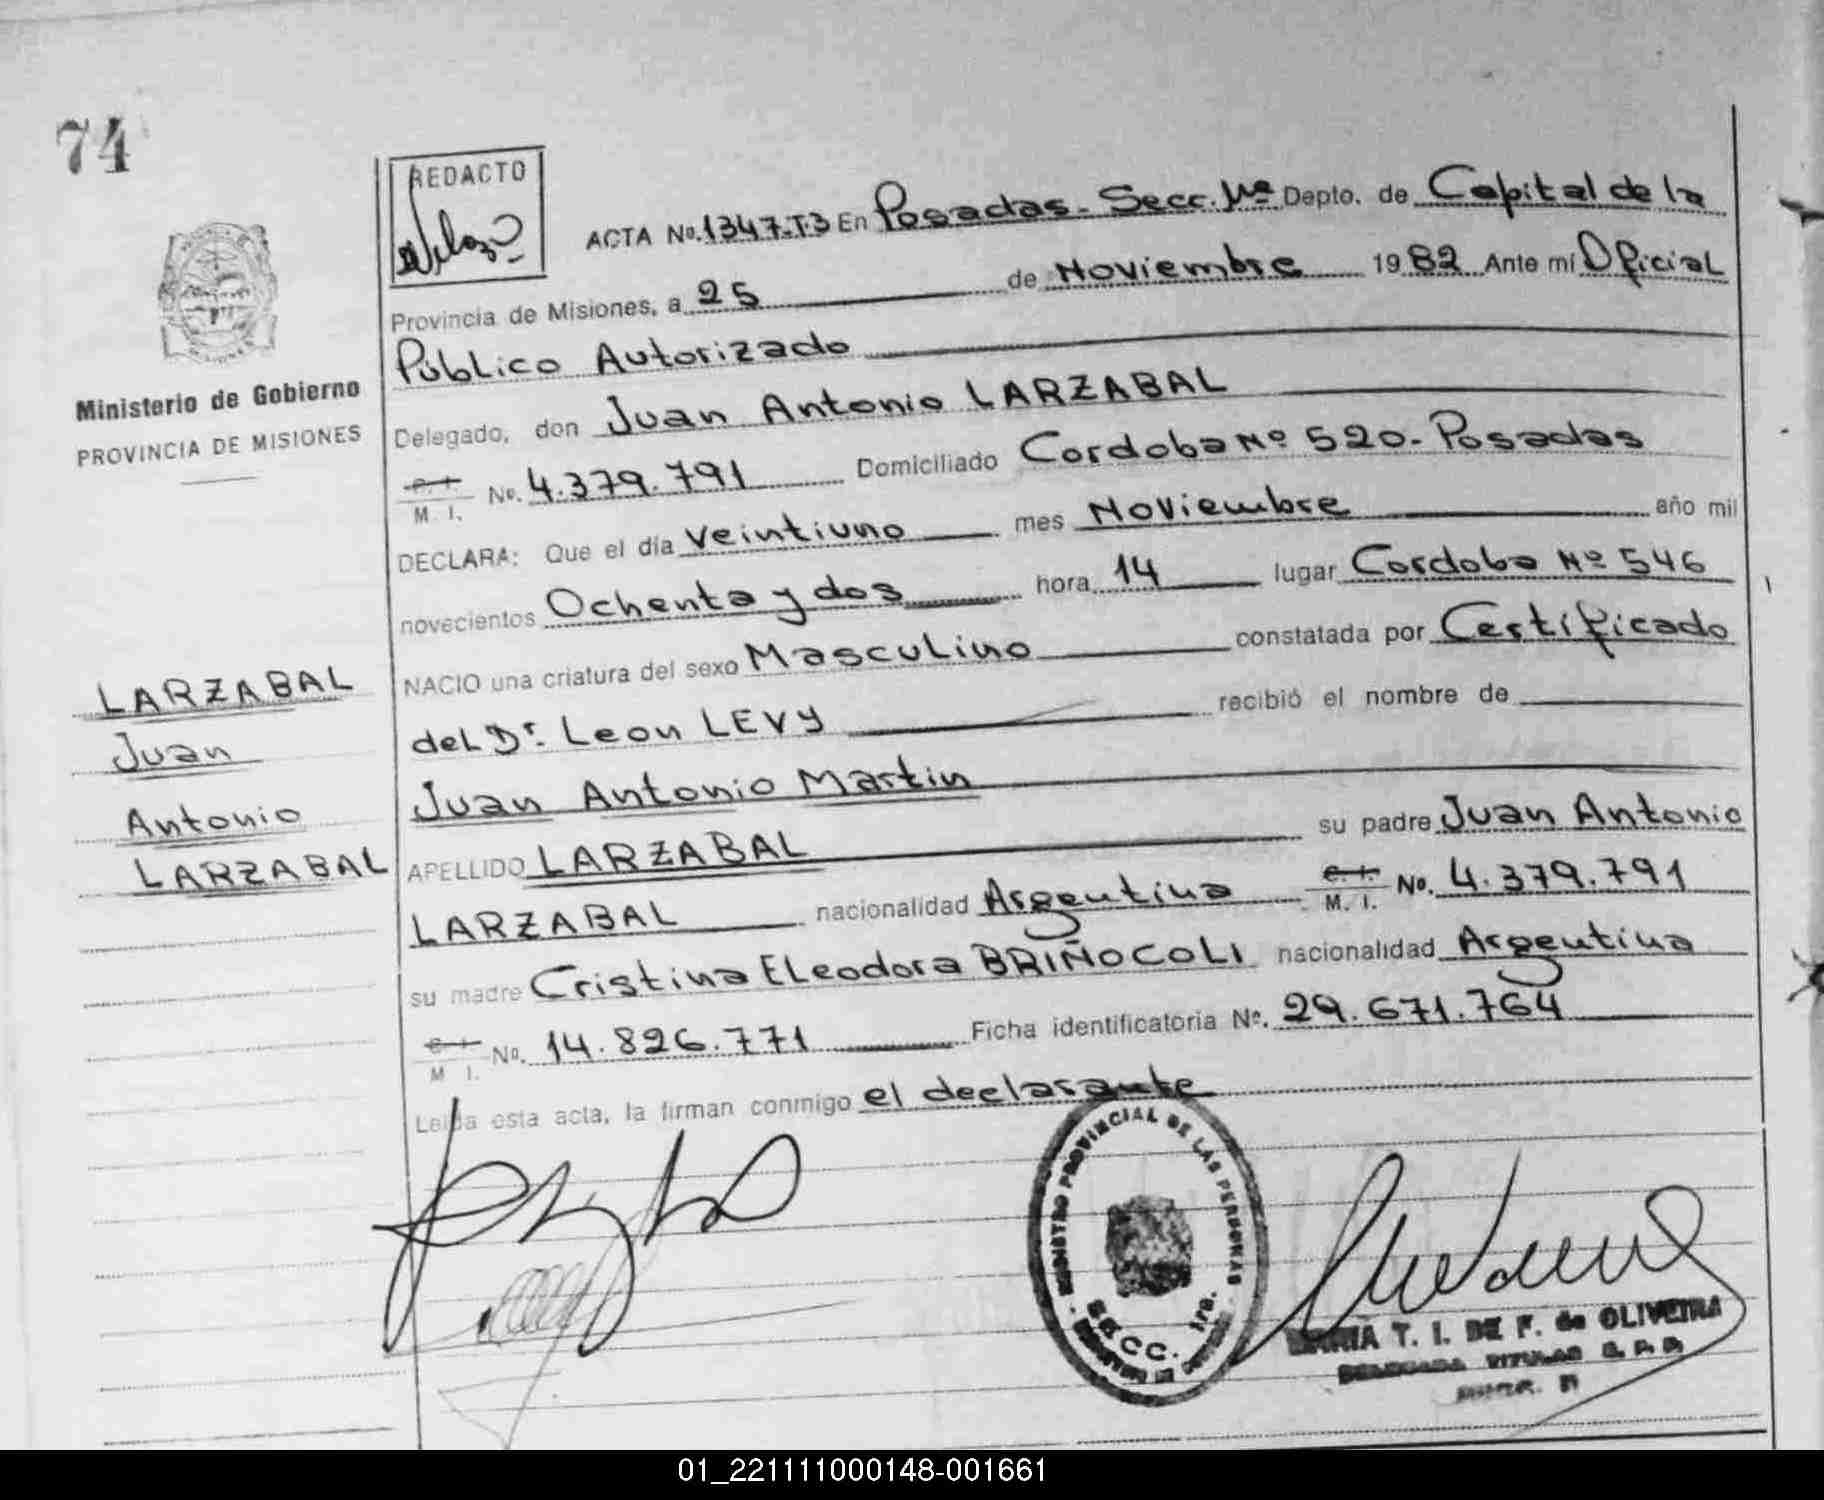 74
REDACTO
ACTA No. 1347-T.3 En Posadas - Secc. 1ra Depto. de Capital de la
Provincia de Misiones, a 25 de Noviembre 1982 Ante mí Oficial
Público Autorizado
Delegado, don Juan Antonio LARZABAL
C. I.
M. I. No. 4.379.791 Domiciliado Cordoba Nº 520 - Posadas
DECLARA: Que el día veintiuno mes Noviembre año mil
novecientos Ochenta y dos hora 14 lugar Cordoba Nº 546
NACIO una criatura del sexo Masculino constatada por Certificado
del Dr. Leon LEVY recibió el nombre de
Juan Antonio Martin
APELLIDO LARZABAL su padre Juan Antonio
LARZABAL nacionalidad Argentina C. I.
M. I. No. 4.379.791
su madre Cristina Eleodora BRIÑOCOLI nacionalidad Argentina
C. I.
M. I. No. 14.826.771 Ficha identificatoria No. 29.671.764
Leída esta acta, la firman conmigo el declarante
Ministerio de Gobierno
PROVINCIA DE MISIONES
LARZABAL
Juan
Antonio
LARZABAL
REGISTRO PROVINCIAL DE LAS PERSONAS
SECC. 1ra.
MARIA T. I. DE F. de OLIVEIRA
DELEGADA TITULAR
01_221111000148-001661